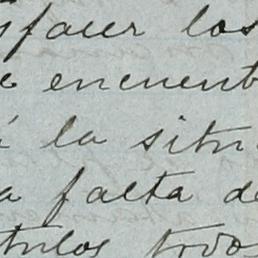 sfacer los
e encuent
á la situ
a falta de
tulos todo